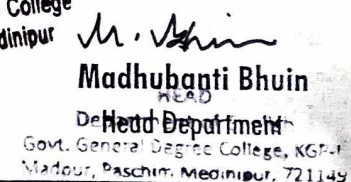 College
dinipur
M. Bhuin
Madhubanti Bhuin
HEAD
Head Department
Govt. General Degree College, KGP-I
Madpur, Paschim Medinipur, 721149